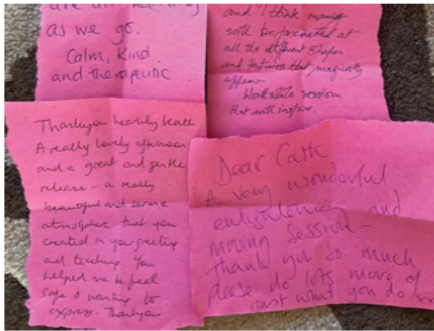 as we go.
Calm, kind
and therapeutic
and I think many
will be fascinated at
all the different shapes
and textures that magically
appear.
Worthwhile session
that will inspire.
Thankyou
A really lovely afternoon
and a great and gentle
release - a really
beautiful and serene
atmosphere that you
created in your greeting
and teaching. You
helped me to feel
safe & wanting to
express. Thankyou
Dear Cath
A very wonderful
enlightening and
moving session -
Thank you so much
please do lots more of
just what you do xx